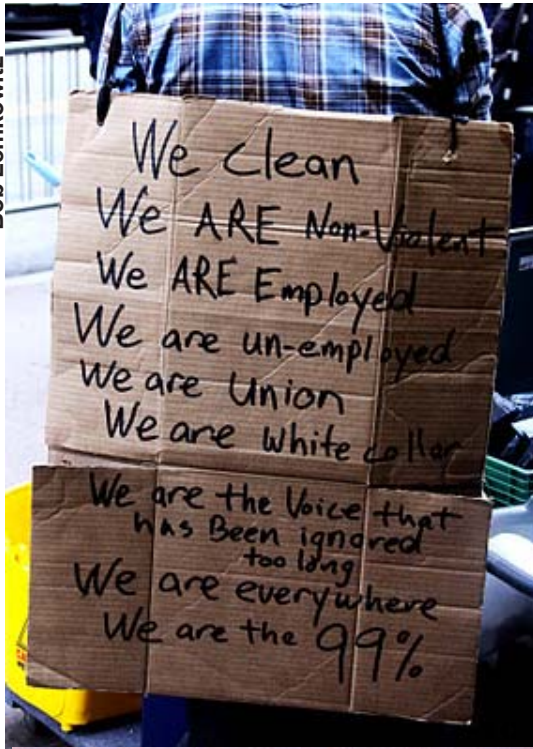 We clean
We ARE Non-Violent
We ARE Employed
We are un-employed
We are Union
We are white collar
We are the Voice that
has Been ignored
too long
We are everywhere
We are the 99%